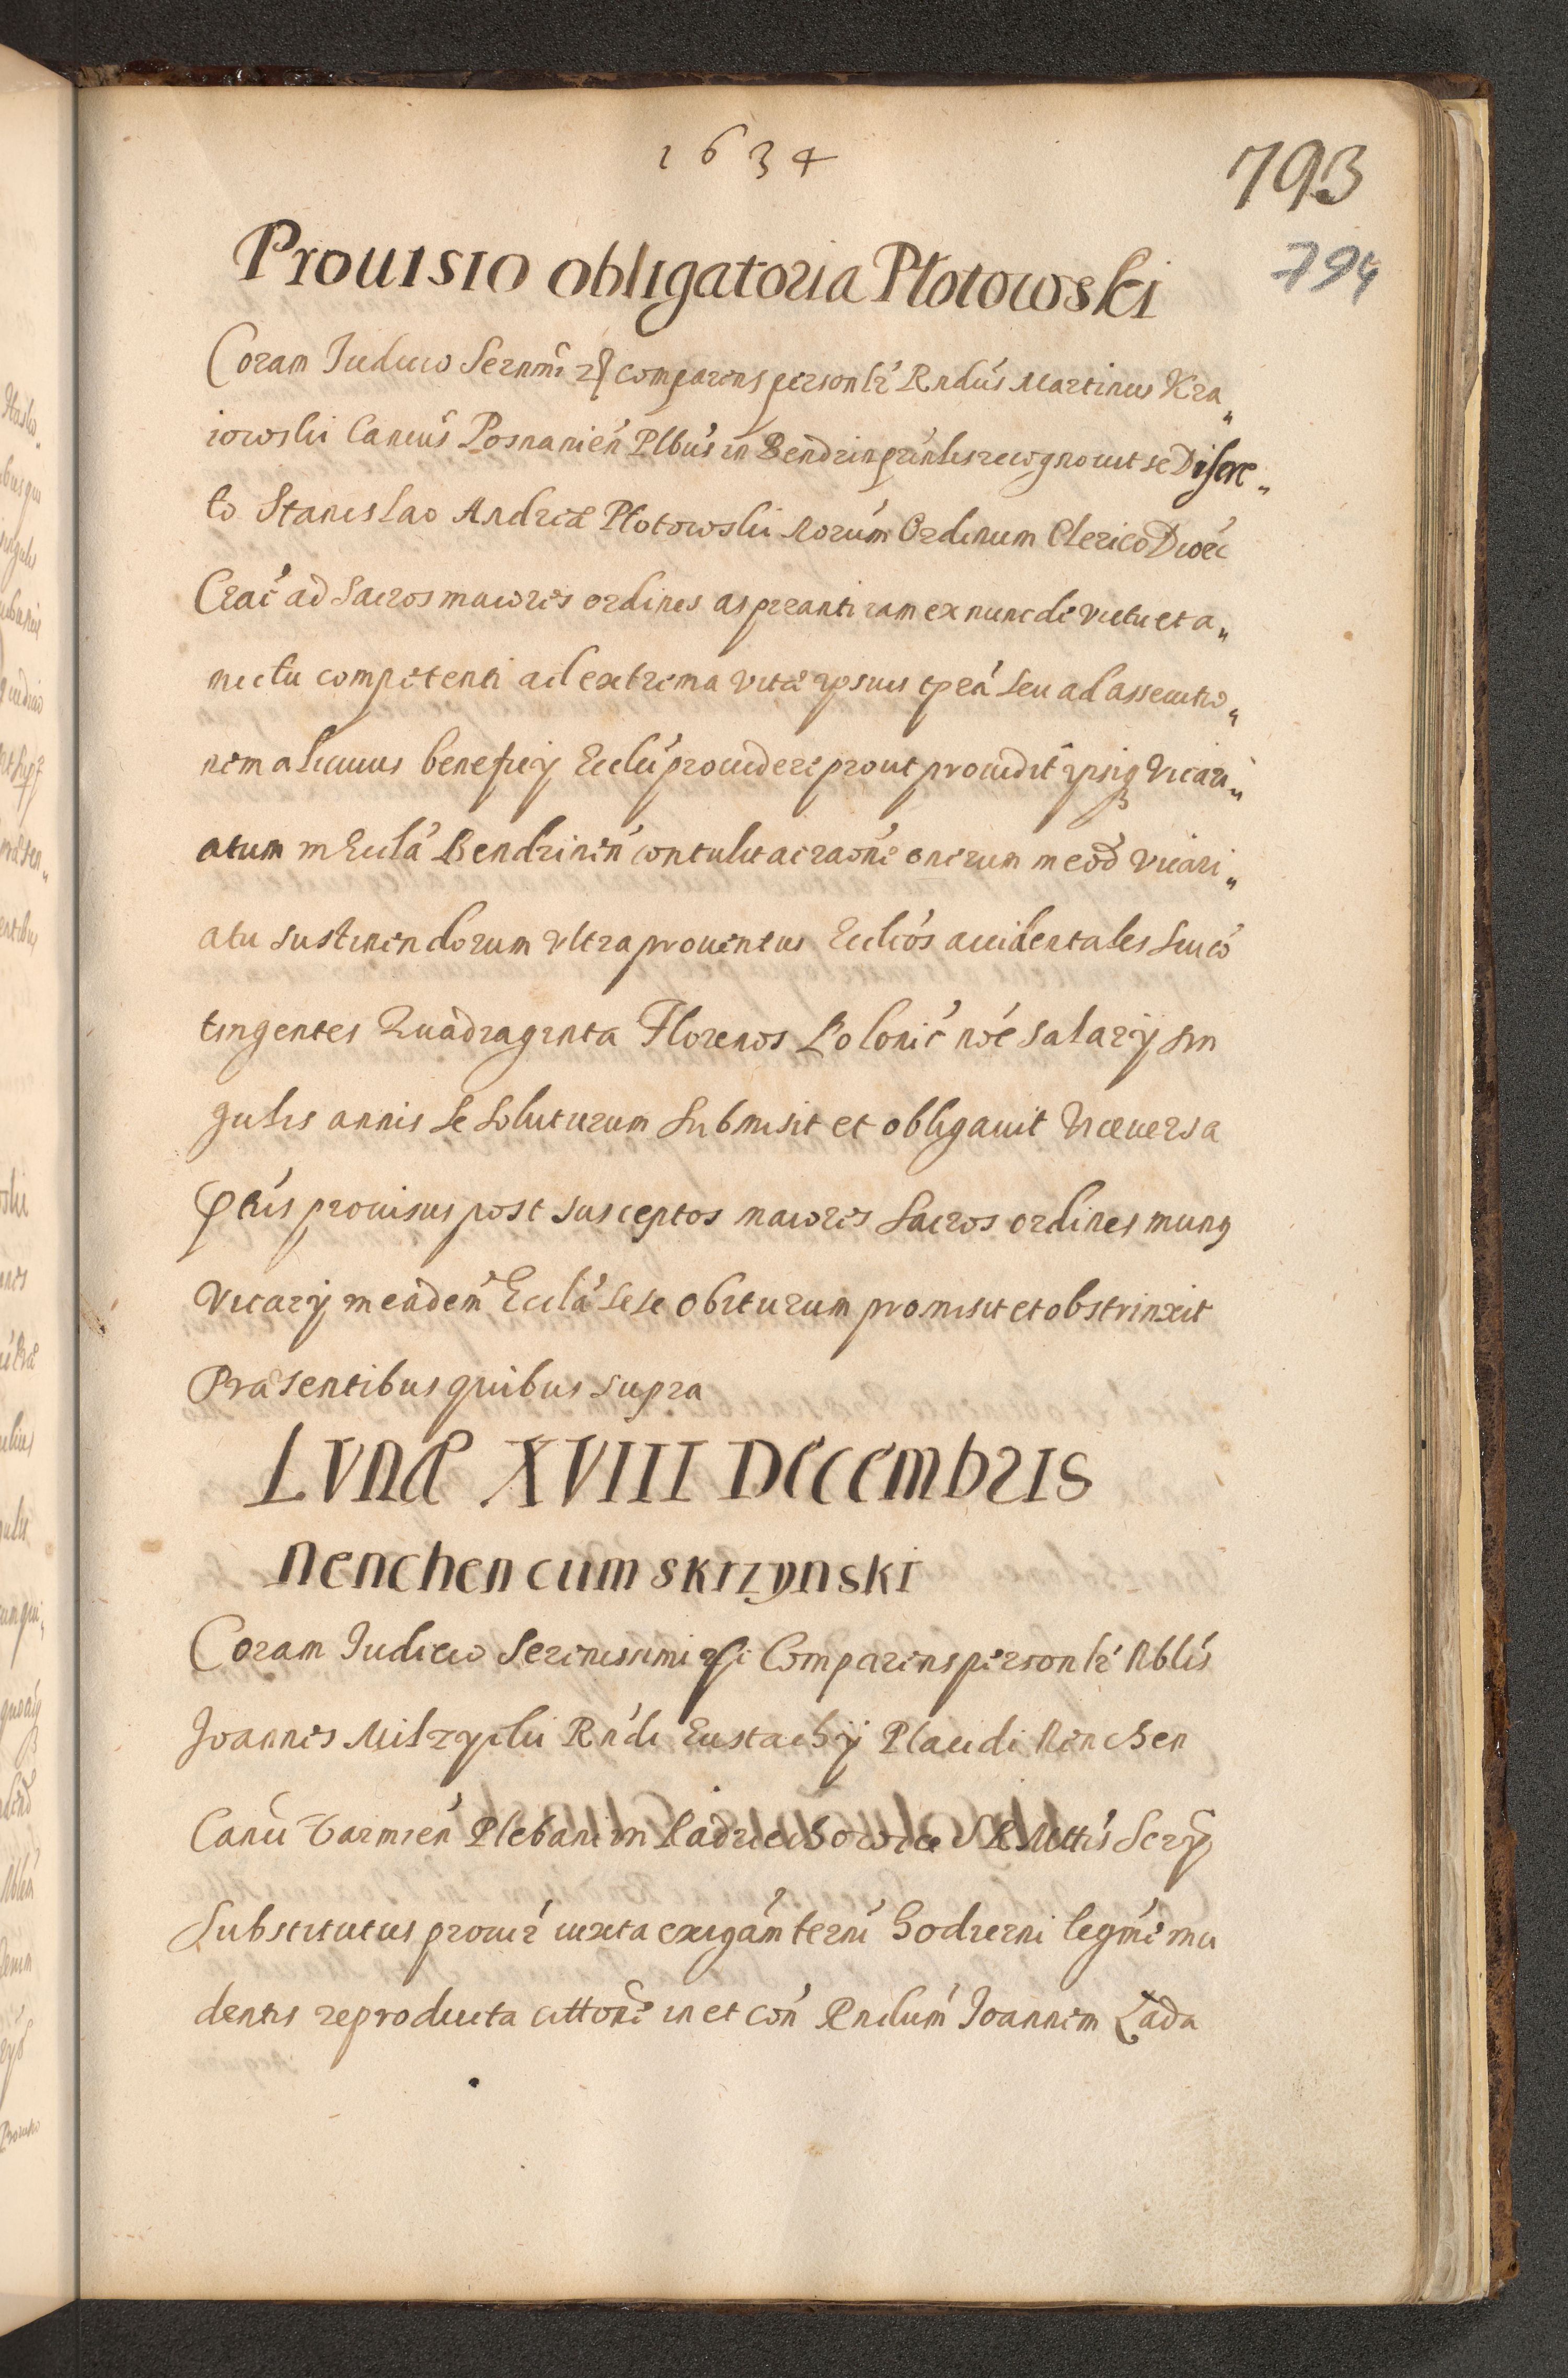 1634
793
794
Prouisio obligatoria Płotowski
Coram Iudicio Sernmi &c comparens personlr Rndus Martinus Kra„
iowski Cancus Posnanien Plbus in Bendzin pnntis recognouit se Discre„
to Stanislao Andreæ Płotowski Norum Ordinum Clerico Dioec
Crac ad Sacros maiores ordines aspiranti iam ex nunc de victu et a„
mictu competenti ad extrema vitæ ipsius tpra seu ad assecutio„
nem alicuius beneficij Ecclci prouidere prout prouidit ipsiq Vicari„
atum in Eccla Bendzinen contulit ac raone onerum in eod Vicari„
atu sustinendorum vltra prouentus Ecclcos accidentales sui co
tingentes Quadraginta Florenos Polonic noe salarij sin
gulis annis se soluturum submisit et obligauit Viceuersa
Pttus prouisus post susceptos maiores sacros ordines munq
Vicarij in eadem Eccla sese obiturum promisit et obstrinxit
Præsentibus quibus supra
LVNÆ XVIII Decembris
Nenchen cum Skrzynski
Coram Iudicio Serenissimi &c Comparens personlr Nblis
Ioannes Milzycki Rndi Eustachij Placidi Nenchen
Canci Varmien Plebani in Radziechowice S R Mttis Scrp
Substitutus procur iuxta exigam termi hodierni legme inci
dentis reproducta cittone in et con Rndum Ioannem Łada